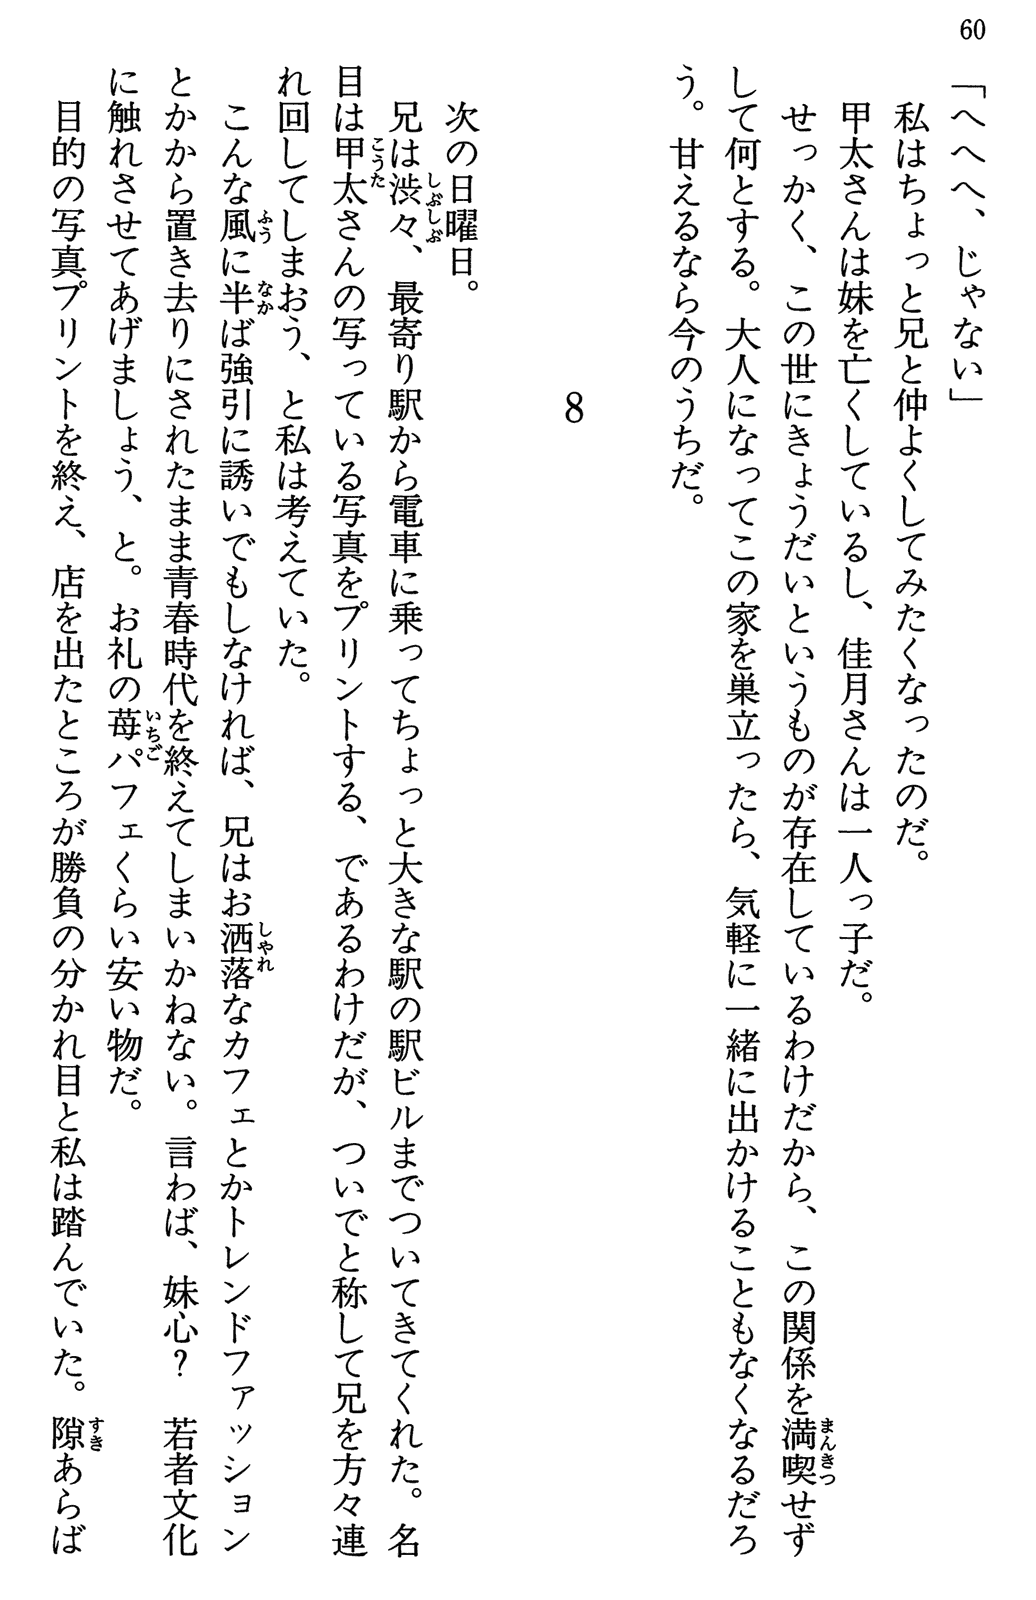 60
「へへへ、じゃない」
　私はちょっと兄と仲よくしてみたくなったのだ。
　甲太さんは妹を亡くしているし、佳月さんは一人っ子だ。
　せっかく、この世にきょうだいというものが存在しているわけだから、この関係を満喫せず
して何とする。大人になってこの家を巣立ったら、気軽に一緒に出かけることもなくなるだろ
う。甘えるなら今のうちだ。
8
　次の日曜日。
　兄は渋々、最寄り駅から電車に乗ってちょっと大きな駅の駅ビルまでついてきてくれた。名
目は甲太さんの写っている写真をプリントする、であるわけだが、ついでと称して兄を方々連
れ回してしまおう、と私は考えていた。
　こんな風に半ば強引に誘いでもしなければ、兄はお洒落なカフェとかトレンドファッション
とかから置き去りにされたまま青春時代を終えてしまいかねない。言わば、妹心？　若者文化
に触れさせてあげましょう、と。お礼の苺パフェくらい安い物だ。
　目的の写真プリントを終え、店を出たところが勝負の分かれ目と私は踏んでいた。隙あらば